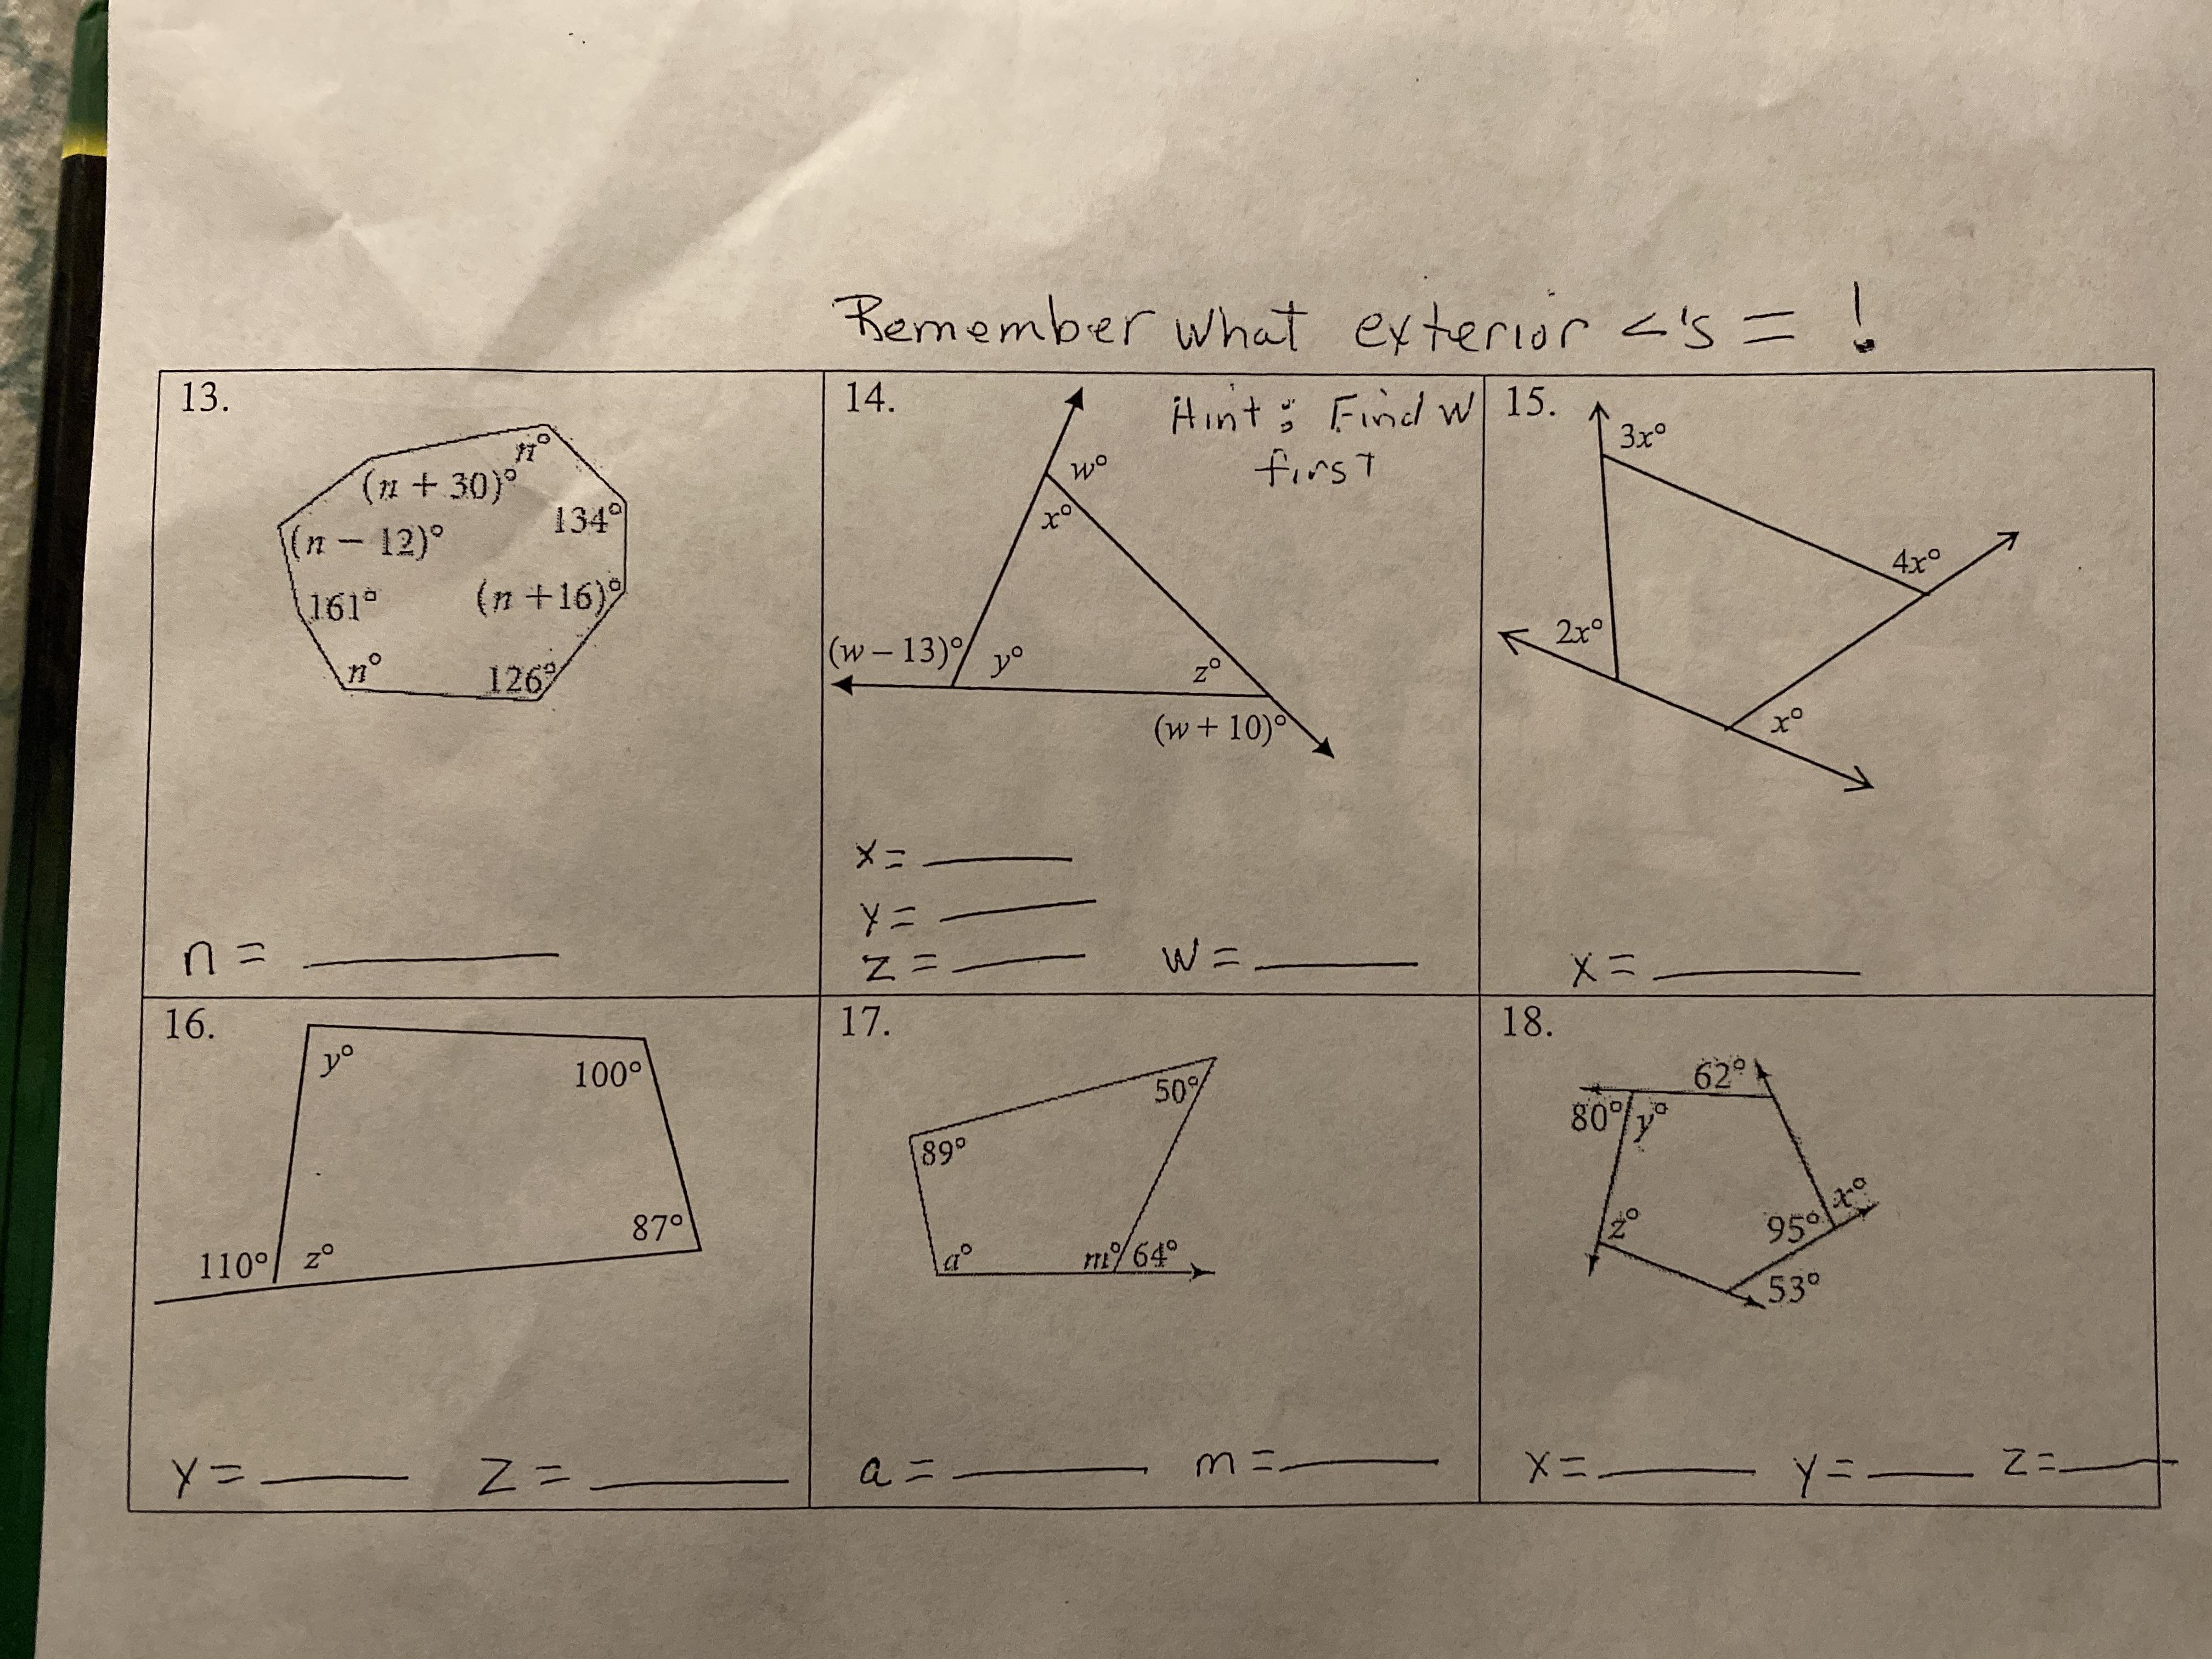 Remember what exterior <'s = !
13.
n°
(n + 30)°
134°
(n - 12)°
161°
(n +16)°
n°
126°
n =
14.
Hint: Find w
first
w°
x°
(w – 13)°
y°
z°
(w + 10)°
x =
y =
z =
w =
15.
3x°
4x°
2x°
x°
x =
16.
y°
100°
87°
110°
z°
y =
z =
17.
50°
89°
a°
m°
64°
a =
m =
18.
62°
80°
y°
x°
z°
95°
53°
x =
y =
z =